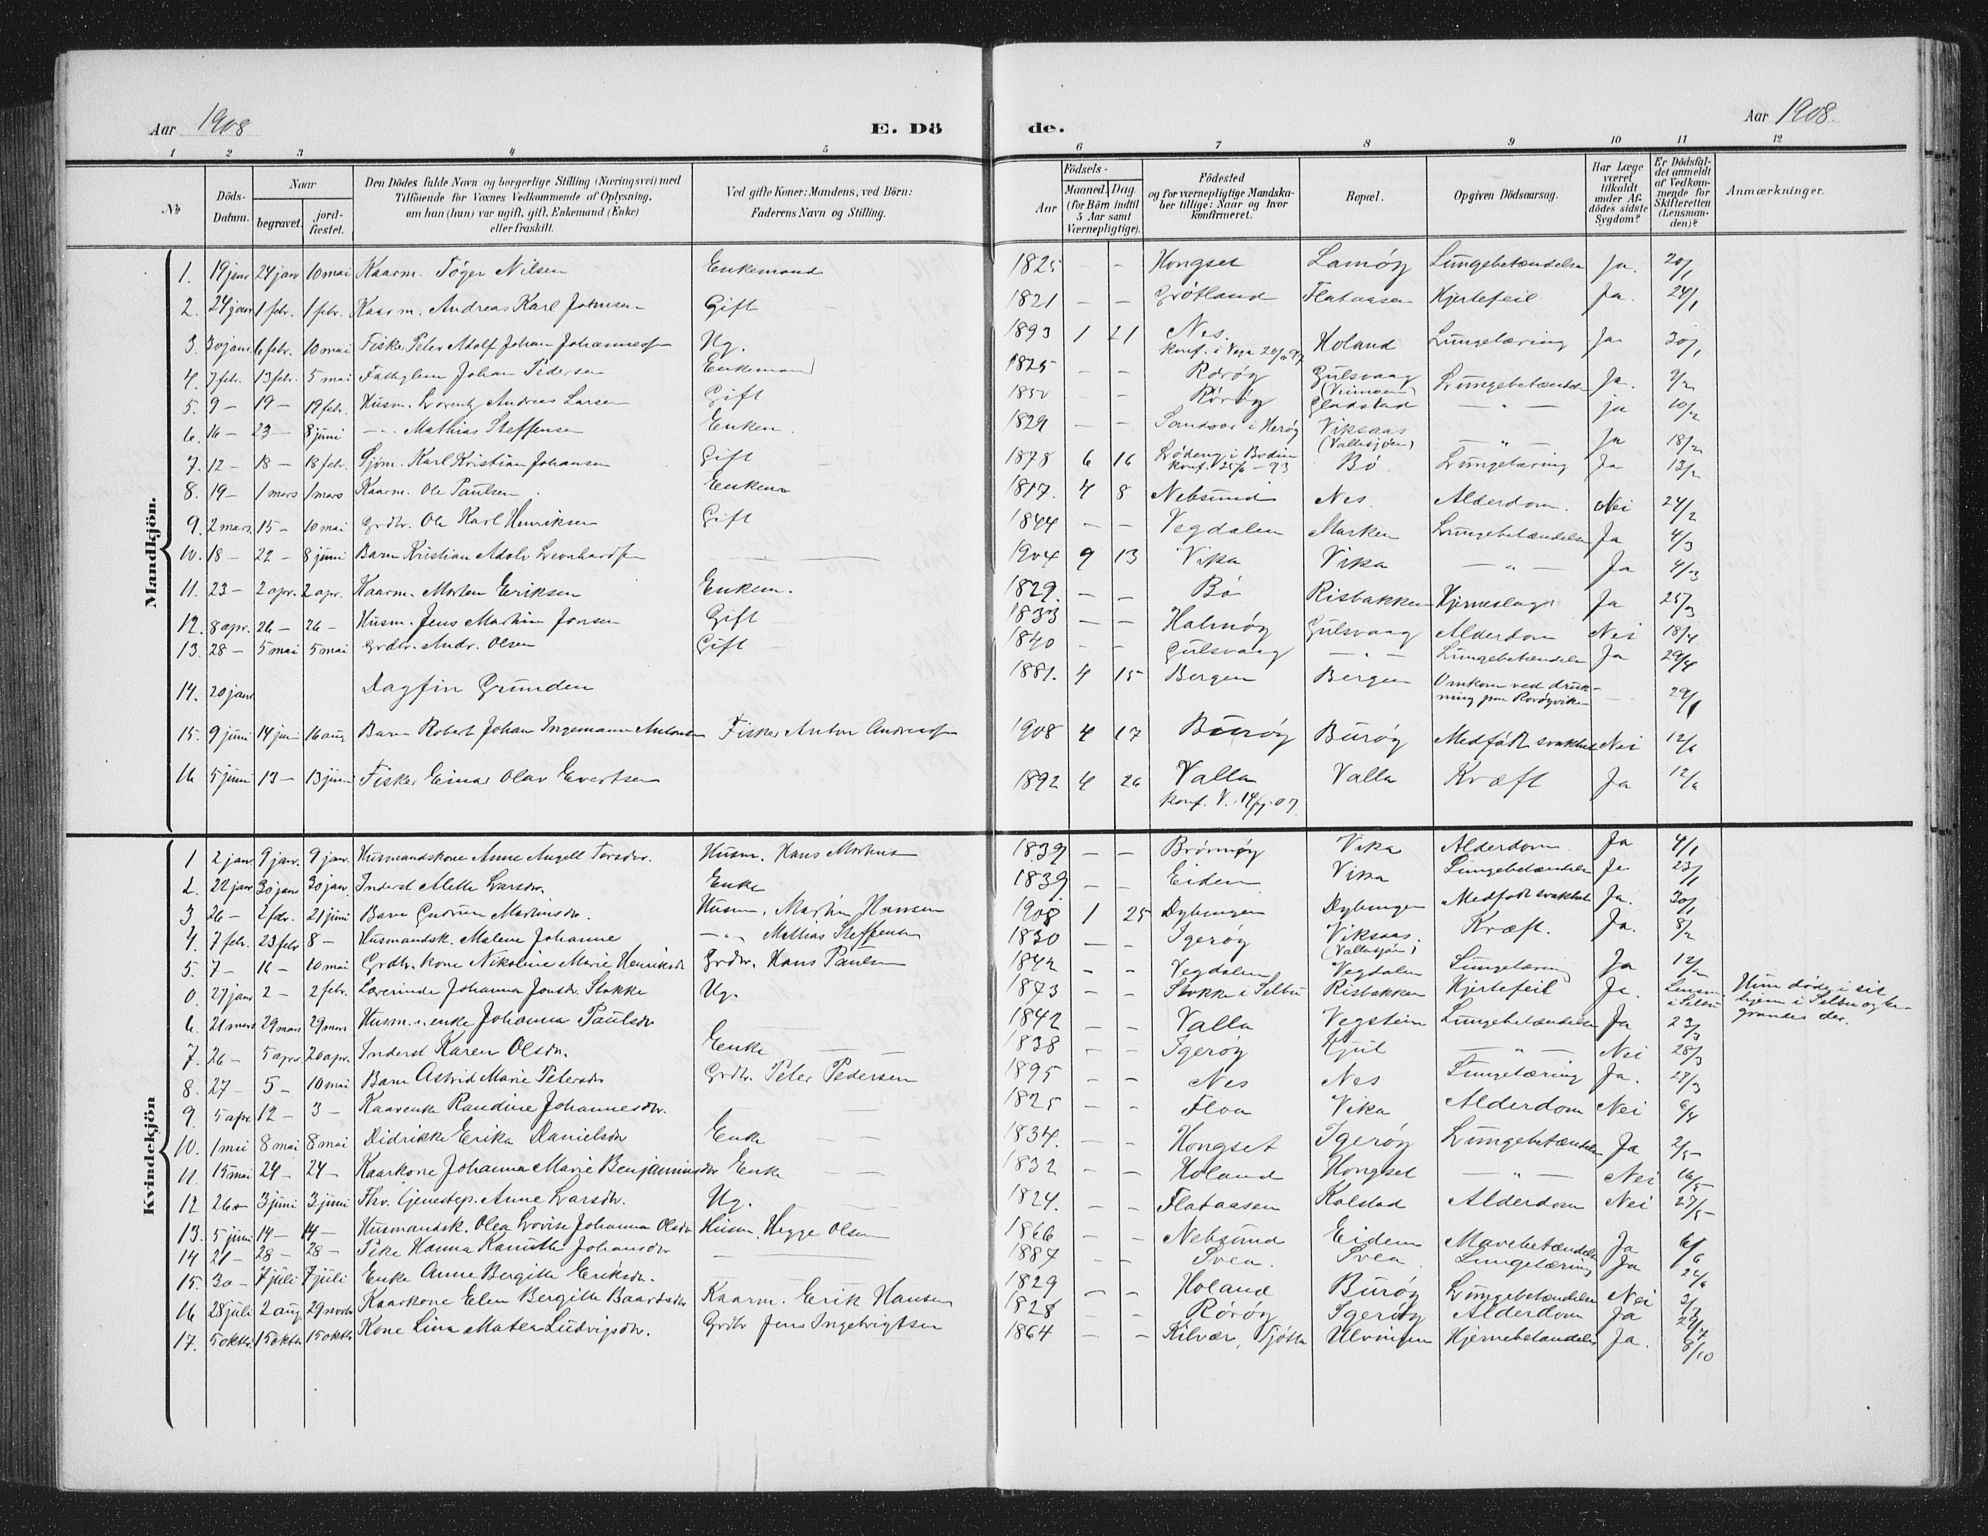 Aar 1908
E. Dö
de.
Aar 1908.
1 2 3 4 5 6 7 8 9 10 11 12
No
Döds-Datum.
Naar
begravet.
jord-fæstet.
Den Dödes fulde Navn og borgerlige Stilling (Næringsvei) med
Tilföiende for Voxnes Vedkommende af Oplysning,
om han (hun) var ugift, gift, Enkemand (Enke)
eller fraskilt.
Ved gifte Koner: Mandens, ved Börn:
Faderens Navn og Stilling.
Födsels-
Aar
Maaned. Dag.
(for Börn indtil
5 Aar samt
Værnepligtige).
Födested
og for værnepligtige Mandska-
ber tillige: Naar og hvor
konfirmeret.
Bopæl.
Opgiven Dödsaarsag.
Har Læge
været
tilkaldt
under Af-
dödes sidste
Sygdom?
Er Dödsfal-
det anmeldt
af Vedkom-
mende for
Skifteretten
(Lensman-
den)?
Anmærkninger.
Mandkjön.
1. 19 janr 24 janr 10 mai Kaarm. Töger Nilsen Enkemand 1825 – – Hongset Lamöy Lungebetændelse Ja. 20/1
2. 24 janr 1 febr. 1 febr. Kaarm. Andreas Karl Johnsen Gift 1821 – – Grötland Flataasen Hjertefeil Ja. 24/1
3. 30 janr 6 febr. 10 mai Fisker Peter Adolf Johan Johannessen Ug. 1893 1 21 Nes. Holand Lungetæring Ja 30/1
konf. i Vega
4. 7 febr. 13 febr. 5 mai Johan Pedersen Enkemand 1825 – – Röröy Gulsvaag Lungebetændelse Ja.
5. 9 – 19 – 19 febr. Husm. Lorentz Andreas Larsen Gift 1850 – – Röröy Gladstad – " – ja 10/2
6. 16 – 23 – 8 juni – " – Mathias Steffensen Enkem. 1829 – – Sandvær i Heröy Viksaas (Vallasjöen) – " – Ja 18/2
7. 12 – 18 – 18 febr. Sjöm. Karl Kristian Johansen Gift 1878 6 16 Löding i Bodin Bö Lungetæring Ja 13/2
konf. 25/6 – 93
8. 19 – 1 mars 1 mars Kaarm. Ole Paulsen Enkem 1817. 4 8 Nebsund Nes Alderdom. Nei 24/2
9. 2 mars 15 – 10 mai Grdbr. Ole Karl Henriksen Gift 1844 – – Vegdalen Marken Lungebetændelse Ja 4/3
10. 18 – 22 – 8 juni Barn Kristian Adolv Leonhardsen 1904 9 13 Vika Vika – " – Ja
11. 23 – 2 apr. 2 apr. Kaarm. Morten Eriksen Enkem. 1829. – – Bö Risbakken Hjerneslag Ja 25/3
12. 8 apr. 26 – 26 – Husm. Jens Martin Jonsen Gift 1833 – – Halmöy Gulsvaag Alderdom Nei 18/4
13. 28 – 5 mai 5 mai Grdbr. Andr. Olsen Gift 1840 – – Gulsvaag – " – Lungebetændelse Ja 29/4
14. 20 janr Dagfin Grunden 1881. 4 15 Bergen Bergen Omkom ved druk-
ning paa Röröyviken 29/1
15. 9 juni 14 juni 16 aug Barn Robert Johan Ingemann Antonsen Fisker Anton Andreassen 1908 4 17 Buröy Buröy Medfödt svakhet Nei 12/6
16 5 juni 13 – 13 juni Fisker Einar Olav Evertsen 1892 4 26 Valla Valla Kræft Ja 12/6
konf. V.
Kvindekjön
1 2 janr 9 janr. 9 janr. Husmandskone Anne Angell Torsdtr. Husm. Hans Morhus 1839 – – Brönnöy Vika Alderdom. Ja 4/1
2. 22 janr 30 janr 30 janr. Inderst Mette Larsdtr. Enke 1839. – – Eidem Vika Lungebetændelse Ja 23/1
3 26 – 2 febr. 21 juni Barn Gudrun Martinsdtr. Husm. Martin Hansen 1908 1 25 Dybingen Dybingen Medfödt svakhet Ja. 30/1
4. 7 febr. 23 febr 8 – Husmandsk. Malene Johanne – " – Mathias Steffensen 1830 – – Igeröy Viksaas. (Vallasjöen) Kræft. Ja. 8/2
5. 7 – 16 – 10 mai Grdbr. kone Nikoline Marie Henriksdr Grdbr. Hans Paulsen 1842 – – Vegdalen Vegdalen Lungetæring Ja 12/2
0. 27 janr 2 – 2 febr. Lærerinde Johanna Jonsdtr. Stokke Ug. 1873 – – Stokke i Selbu Risbakken Hjertefeil Ja. Lensm. i Selbu Hun döde i sit
hjem i Selbu og be-
graves der.
6. 21 mars 29 mars 29 mars Husm. enke Johanna Paulsdtr 1842 – – Valla Vegstein Lungebetændelse Ja 23/3
7. 26 – 5 apr 20 apr. Inderst Karen Olsdtr. Enke 1838 – – Igeröy Kjul – " – Nei 28/3
8. 27 – 5 – 10 mai Barn Astrid Marie Petersdtr Grdbr. Peter Pedersen 1895 – – Nes Nes Lungetæring Ja. 27/3
9 5 apr 12 – 3 – Kaarenke Randine Johannesdtr. 1825 – – Floa Vika Alderdom Nei 6/4
10. 1 mai 8 mai 8 mai Didrikke Erika Danielsdtr Enke 1834. – – Hongset Igeröy Lungebetændelse Ja 2/5
11. 15 mai 24 – 24 – Kaarkone Johanna Marie Benjaminsdtr Enke 1832 – – Holand Hongset – " – Nei 16/5
12 26 – 3 juni 3 juni Fhv. tjenestep. Anne Larsdtr. Ug. 1824. – – Flataasen Kolstad Alderdom Nei 27/5
13. 5 juni 14 – 14 – Husmandsk. Olea Lovise Johanna Olsdtr Husm. Hegge Olsen 1866 – – Nebsund Eidem Mavebetændelse Ja 6/6
14 21 – 28 – 28 – Pike Hanna Kamilla Johansdtr 1887 – – Svea. Svea Lungetæring Ja
15. 30 – 7 juli 7 juli Enke Anne Bergitte Eriksdtr. 1829 – – Holand Buröy Lungebetændelse Nei
16 28 juli 2 aug. 29 novbr Kaarkone Elen Bergitte Baardsdtr Kaarm. Erik Hansen 1828 – – Röröy Igeröy Alderdom Ja 29/7
17. 5 oktbr. 15 oktbr 15 oktbr. Kone Lina Matea Ludvigsdtr. Grdbr Jens Ingebrigtsen 1864 – – Kilvær, Tjötta Ulvingen Hjernebetændelse Ja. 8/10